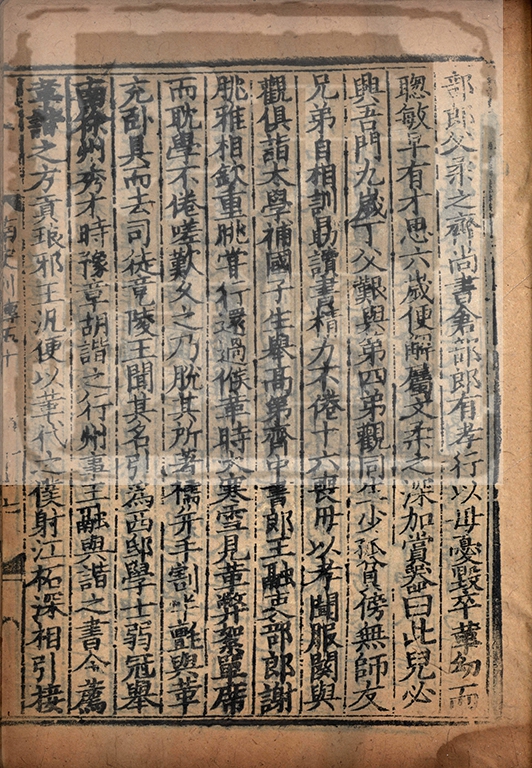 部郎父柔之齊尚書倉部郎有孝行以毋憂毀卒革幼而
聰敏早有才思六歲便解屬文柔之深加賞器曰此兒必
興吾門九歲丁父艱與弟四弟觀同生少孤貧傍無師友
兄弟自相訓勗讀書精力不倦十六喪毋以孝聞服闋與
觀俱詣太學補國子生舉高第齊中書郎王融吏部郎謝
朓雅相欽重朓嘗行還過候革時大寒雪見革弊絮單席
而耽學不倦嗟歎久之乃脫其所著襦并手割半氈與革
充卧具而去司徒竟陵王聞其名引爲西邸學士弱冠舉
南徐州秀才時豫章胡諧之行州事王融與諧之書令薦
革諧之方貢琅邪王汎便以革代之僕射江祏深相引接
南史列傳五十